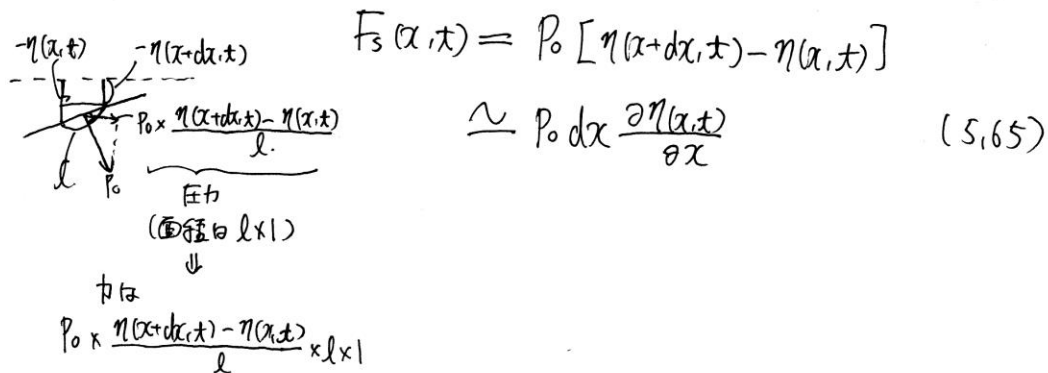 -η(x,t)
-η(x+dx,t)
P₀ × (η(x+dx,t) - η(x,t))/l.
l
P₀
圧力
(面積は l×1)
⇓
力は
P₀ × (η(x+dx,t) - η(x,t))/l × l × 1
Fs(x,t) = P₀[η(x+dx,t) - η(x,t)]
≃ P₀dx ∂η(x,t)/∂x (5,65)